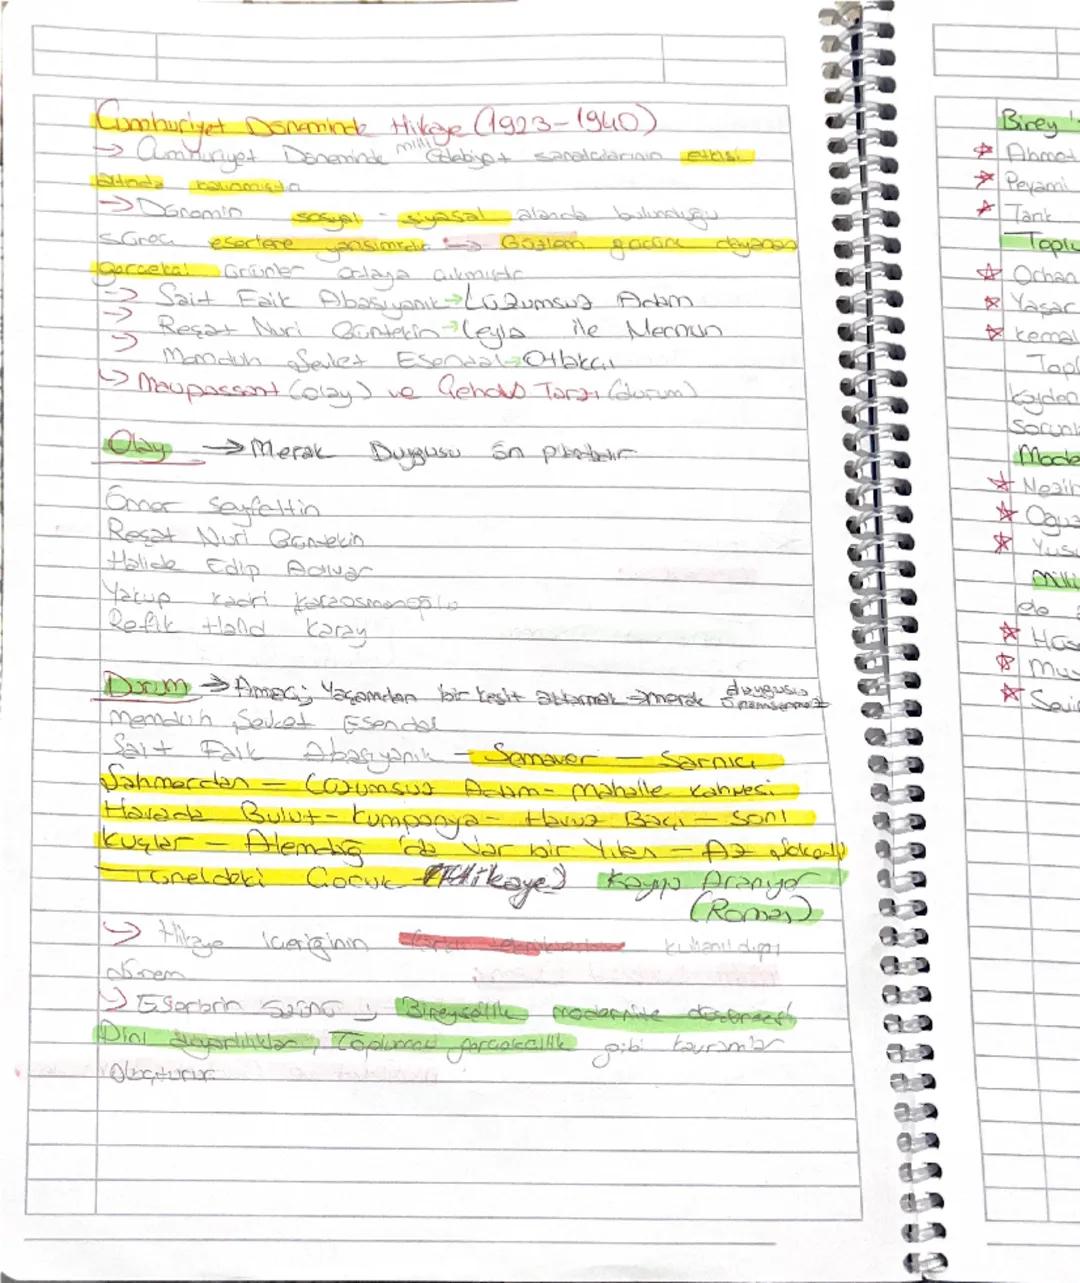 Cumhuriyet Döneminde Hikaye (1923-1940)
→ Cumhuriyet Döneminde milli Edebiyat sanatcılarının etkisi
altında kalınmıştır
→ Dönemin sosyal - siyasal alanda bulunduğu
süreç eserlere yansımıştır → Gözlem gücüne dayanan
gerçekçi ürünler ortaya çıkmıştır
→ Sait Faik Abasıyanık → Lüzumsuz Adam
→ Reşat Nuri Güntekin → Leyla ile Mecnun
→ Memduh Şevket Esendal → Otlakçı
→ Maupassant (olay) ve Çehov Tarzı (durum)
Olay → Merak Duygusu ön plandadır
Ömer Seyfettin
Reşat Nuri Güntekin
Halide Edip Adıvar
Yakup Kadri Karaosmanoğlu
Refik Halid Karay
Durum → Amaç; Yaşamdan bir kesit aktarmak → merak duygusu önemsenmez
Memduh Şevket Esendal
Sait Faik Abasıyanık - Semaver - Sarnıcı
Şahmerdan - Lüzumsuz Adam - Mahalle Kahvesi
Havada Bulut - Kumpanya - Havuz Başı - Son
Kuşlar - Alemdağ 'da Var bir Yılan - Az Şekerli
Tüneldeki Çocuk (Hikaye) Kayıp Aranıyor
(Roman)
→ Hikaye içeriğinin kullanıldığı
dönem
→ Eserlerin özünü; Bireysellik modernite düşüncesi
Dini duyarlılıklar, Toplumcu gerçekcilik gibi kavramlar
oluşturur
Birey
☆ Ahmet
☆ Peyami
☆ Tarık
Toplu
☆ Orhan
☆ Yaşar
☆ Kemal
Topl
Köyden
Sorunl
Mode
☆ Nezih
☆ Oğuz
☆ Yusu
Milli
de
☆ Hüs
☆ Mus
☆ Sevin